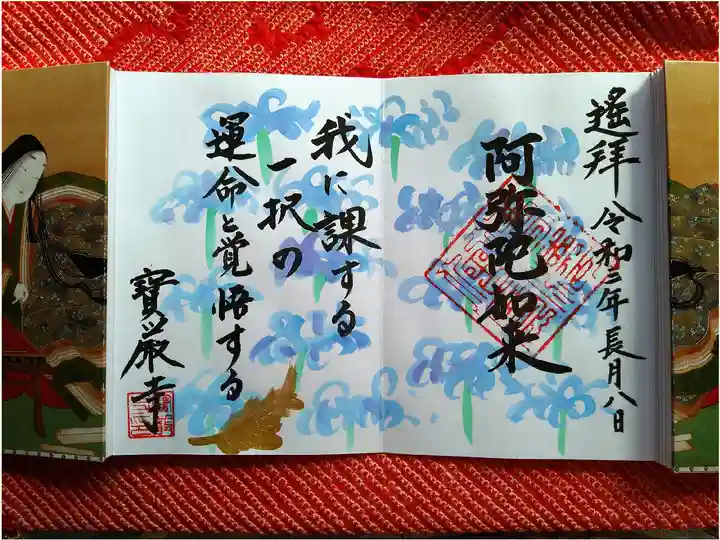 遥拝 令和二年長月八日
阿弥陀如来
我に課する
一択の
運命と覚悟する
寳厳寺